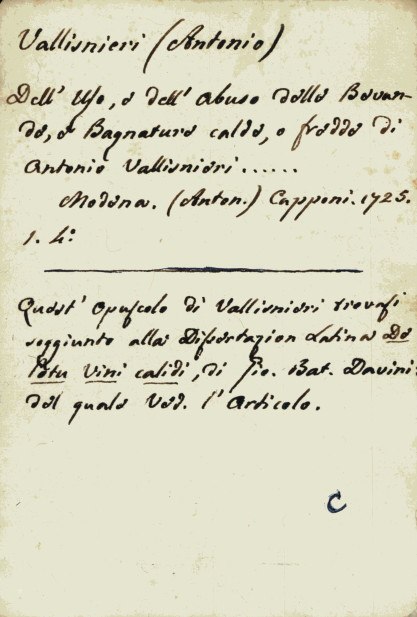 Vallisnieri (Antonio)
Dell' Uso, e dell' Abuso delle Bevan-
de, e Bagnature calde, o fredde di
Antonio Vallisnieri......
Modena. (Anton.) Capponi. 1725.
1. 4º
Quest' Opuscolo di Vallisnieri trovasi
soggiunto alla Disertazion Latina De
Potu Vini calidi, di Gio. Bat. Davini:
del quale Ved. l' Articolo.
C